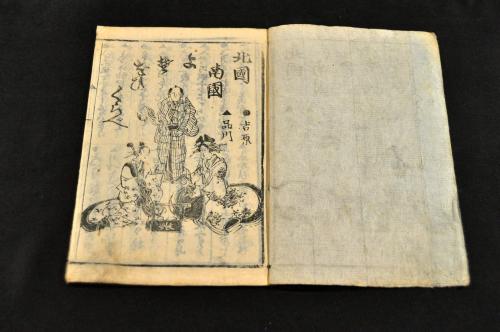 北國
南國
●吉原
▲品川
よ
くらべ